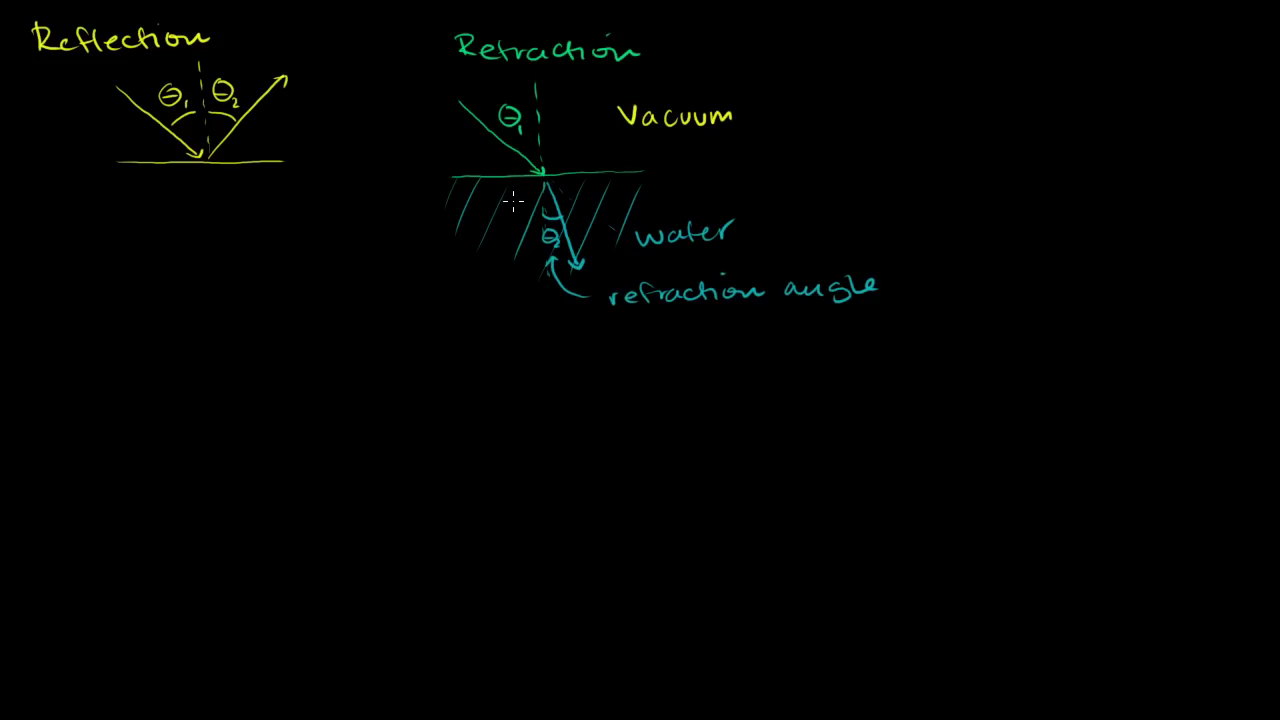 Reflection
θ₁ θ₂
Refraction
θ₁
Vacuum
θ₂
water
refraction angle